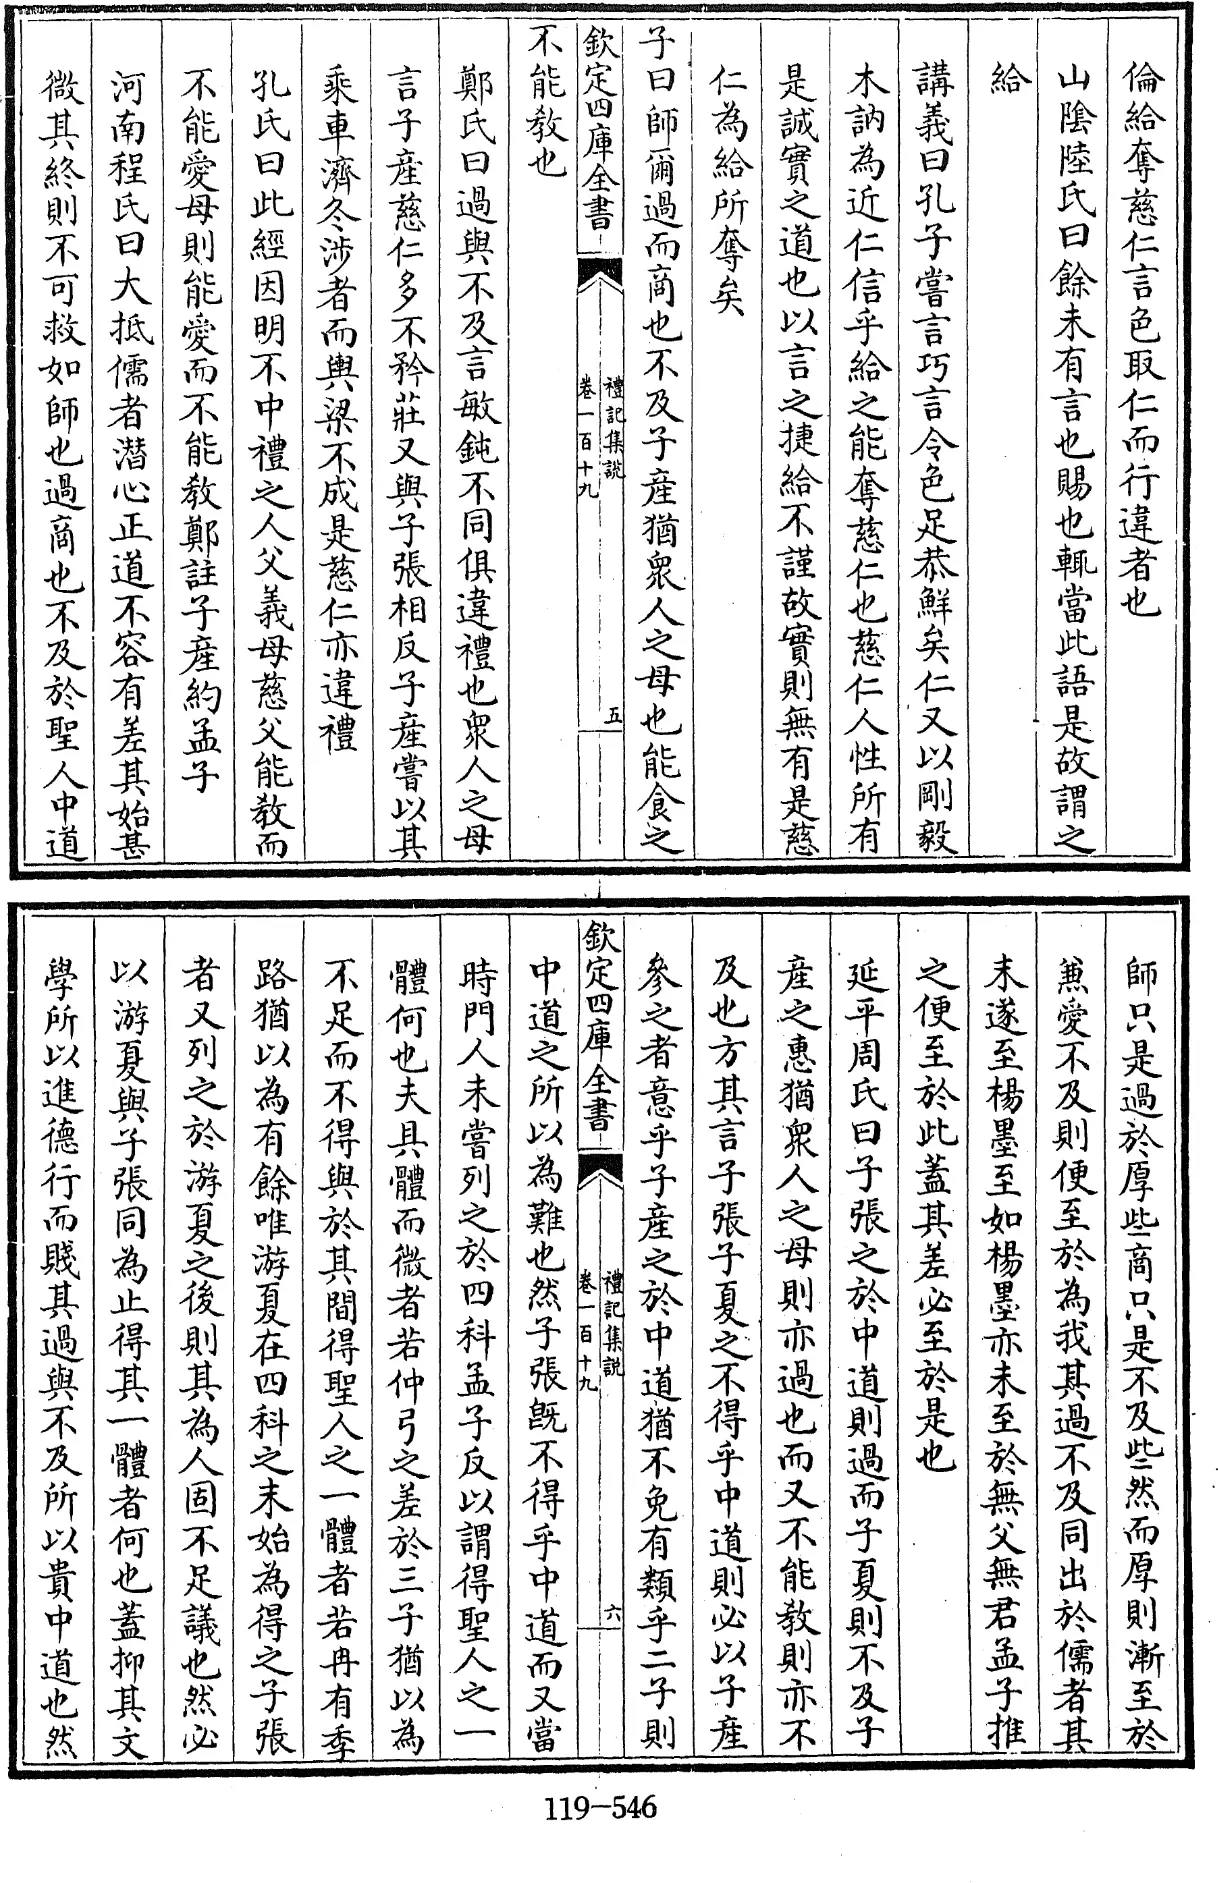 倫給奪慈仁言色取仁而行違者也
山陰陸氏曰餘未有言也賜也輒當此語是故謂之
給
講義曰孔子嘗言巧言令色足恭鮮矣仁又以剛毅
木訥為近仁信乎給之能奪慈仁也慈仁人性所有
是誠實之道也以言之捷給不謹故實則無有是慈
仁為給所奪矣
子曰師爾過而商也不及子產猶衆人之母也能食之
欽定四庫全書
禮記集說
卷一百十九
五
不能教也
鄭氏曰過與不及言敏鈍不同俱違禮也衆人之母
言子產慈仁多不矜莊又與子張相反子產嘗以其
乘車濟冬涉者而輿梁不成是慈仁亦違禮
孔氏曰此經因明不中禮之人父義母慈父能教而
不能愛母則能愛而不能教鄭註子產約孟子
河南程氏曰大抵儒者潛心正道不容有差其始甚
微其終則不可救如師也過商也不及於聖人中道
師只是過於厚些商只是不及些然而厚則漸至於
兼愛不及則便至於為我其過不及同出於儒者其
末遂至楊墨至如楊墨亦未至於無父無君孟子推
之便至於此蓋其差必至於是也
延平周氏曰子張之於中道則過而子夏則不及子
產之惠猶衆人之母則亦過也而又不能教則亦不
及也方其言子張子夏之不得乎中道則必以子產
參之者意乎子產之於中道猶不免有類乎二子則
欽定四庫全書
禮記集說
卷一百十九
六
中道之所以為難也然子張旣不得乎中道而又當
時門人未嘗列之於四科孟子反以謂得聖人之一
體何也夫具體而微者若仲弓之差於三子猶以為
不足而不得與於其間得聖人之一體者若冉有季
路猶以為有餘唯游夏在四科之末始為得之子張
者又列之於游夏之後則其為人固不足議也然必
以游夏與子張同為止得其一體者何也蓋抑其文
學所以進德行而賤其過與不及所以貴中道也然
119-546